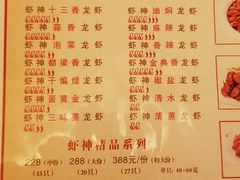 虾神十三香龙虾 虾神油焖龙虾
虾神蒜香龙虾 虾神麻辣龙虾
虾神泡菜龙虾 虾神香辣龙虾
虾神都梁香龙虾 虾神金典香龙虾
虾神干煸煌龙虾 虾神椒盐龙虾
虾神蛋黄金龙虾 虾神清水龙虾
虾神三味蒸龙虾 虾神清蒸龙虾
虾神精品系列
228(中份) 288(大份) 388元/份(特大份)
(15只) (20只) (27只) 单只:40-60克